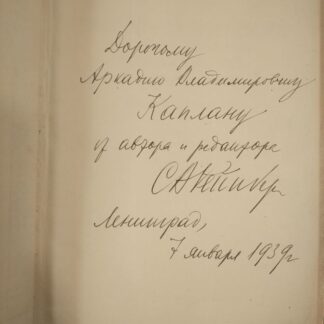 Дорогому
Аркадию Владимировичу
Каплану
от автора и редактора
Ленинград,
7 января 1939г.